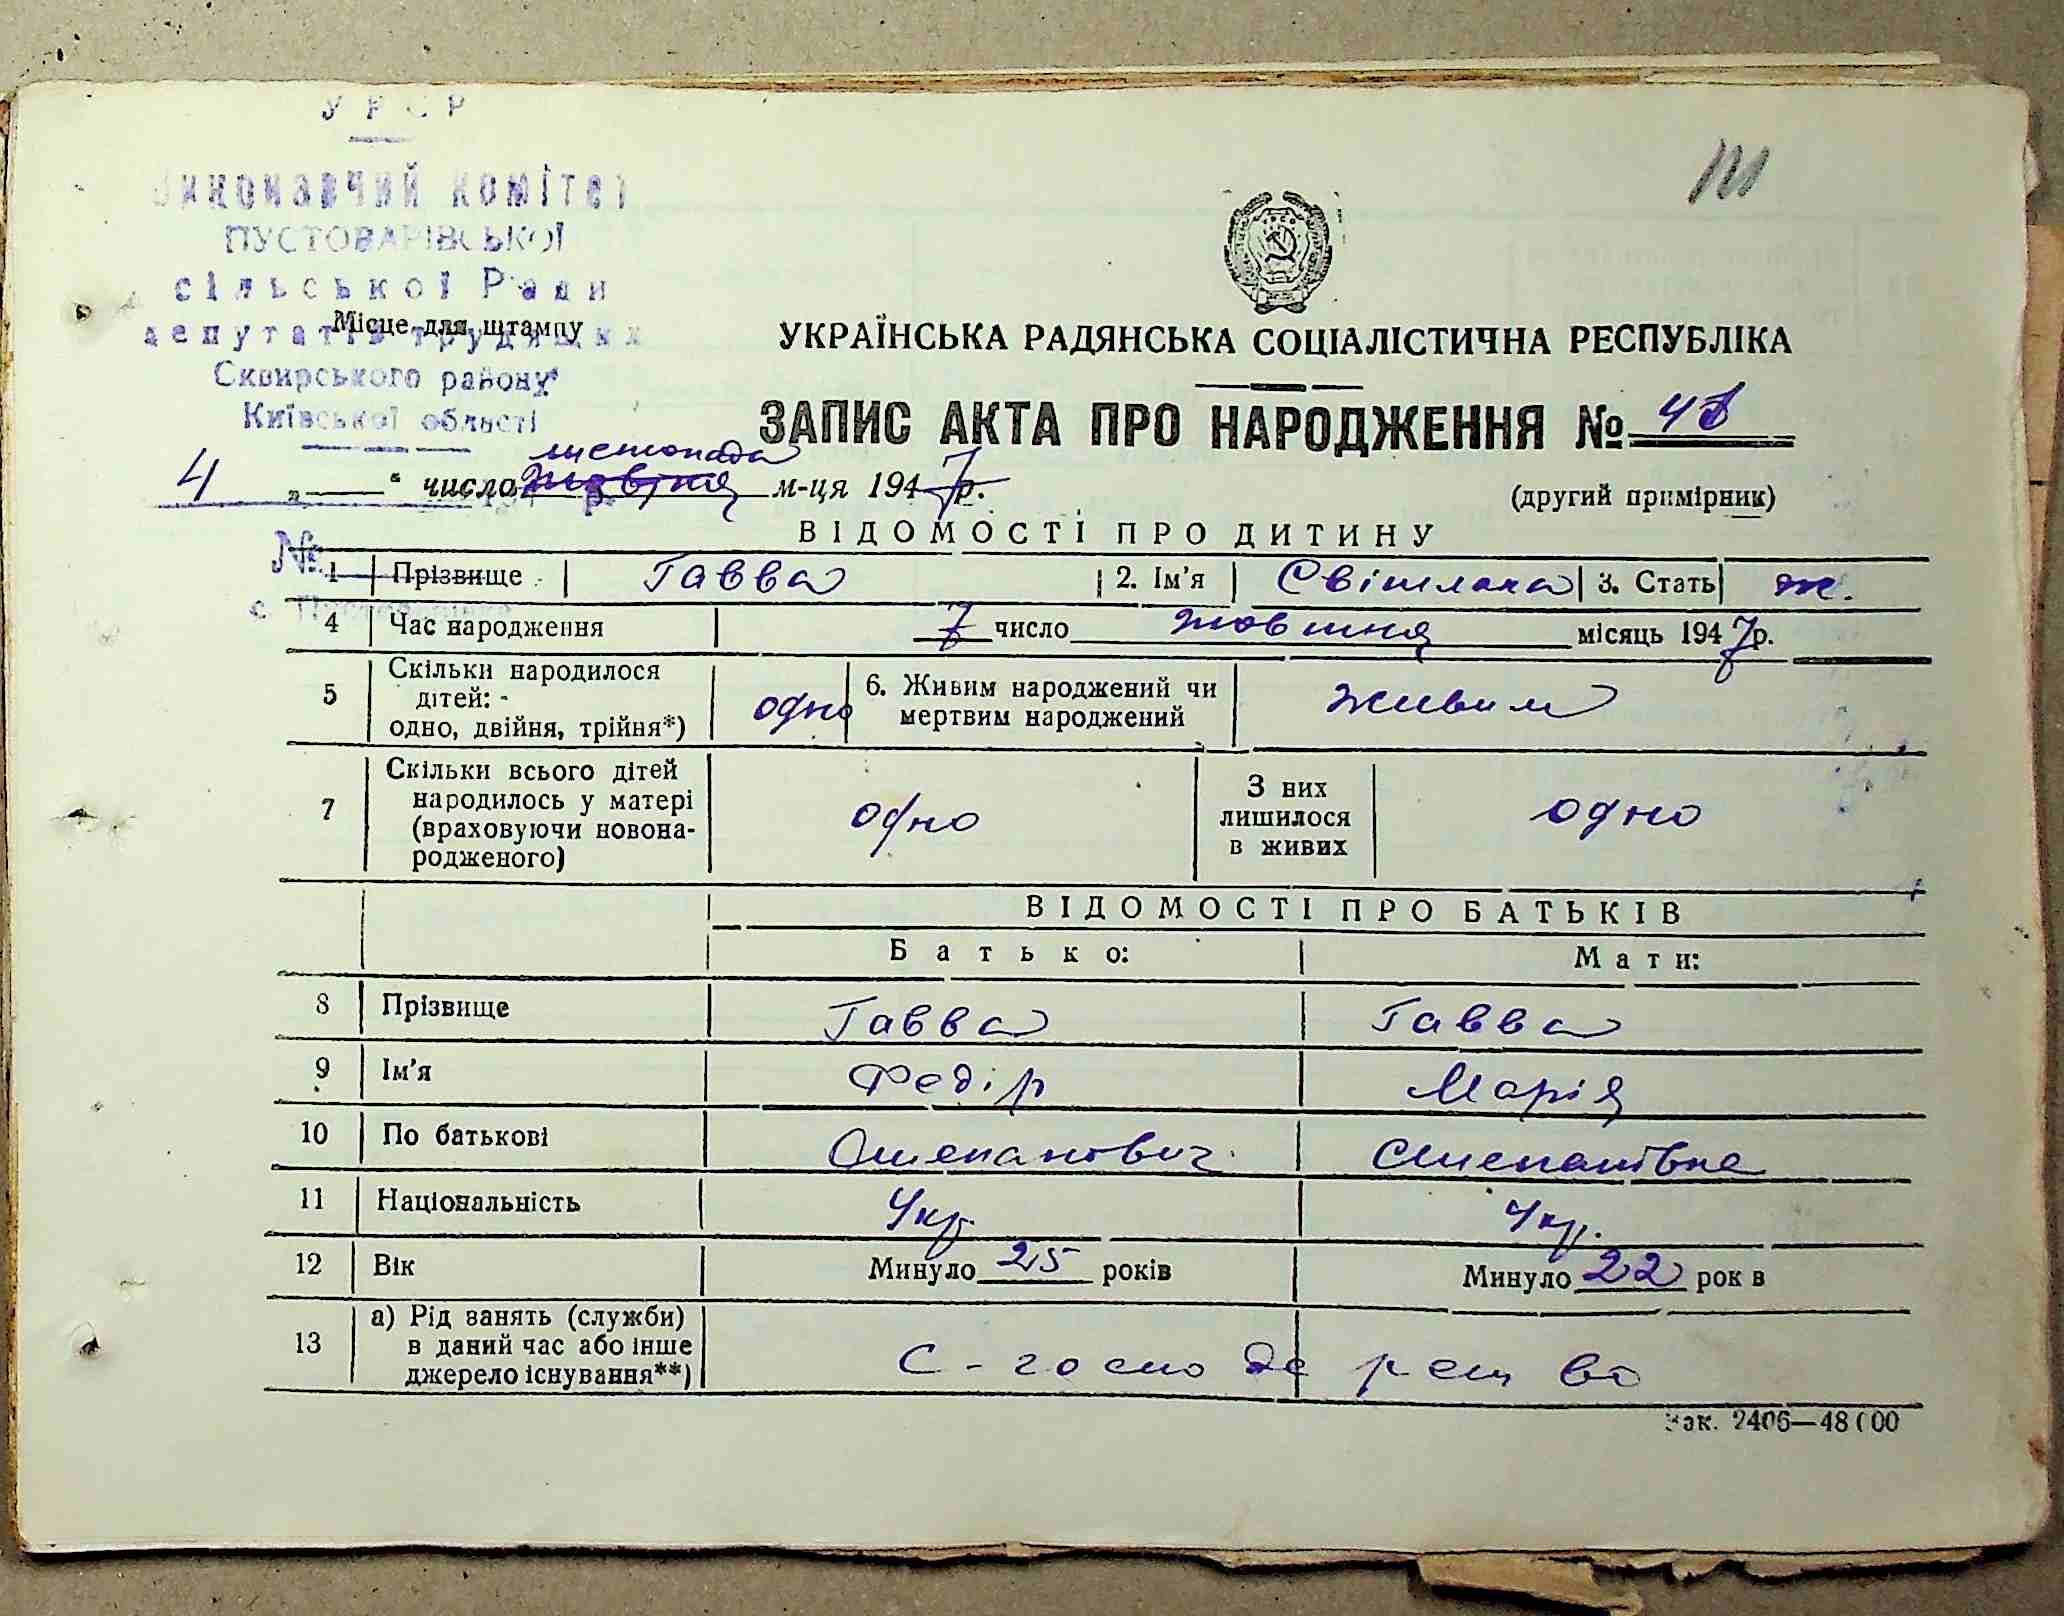 УРСР
Виконавчий комітет
ПУСТОВАРІВСЬКОЇ
сільської Ради
депутатів трудящих
Місце для штампу
Сквирського району
Київської області
№
с. Пустоварівка
УКРАЇНСЬКА РАДЯНСЬКА СОЦІАЛІСТИЧНА РЕСПУБЛІКА
ЗАПИС АКТА ПРО НАРОДЖЕННЯ №
листопада
4 „ “ число жовтня м-ця 1947 р.
(другий примірник)
ВІДОМОСТІ ПРО ДИТИНУ
1 Прізвище Гавва 2. Ім'я Світлана 3. Стать ж.
4 Час народження 7 число жовтня місяць 1947 р.
5 Скільки народилося
дітей: -
одно, двійня, трійня*) одно
6. Живим народжений чи
мертвим народжений живим
7 Скільки всього дітей
народилось у матері
(враховуючи новона-
родженого) одно
З них
лишилося
в живих одно
ВІДОМОСТІ ПРО БАТЬКІВ
Батько: Мати:
8 Прізвище Гавва Гавва
9 Ім'я Федір Марія
10 По батькові Степанович Степанівна
11 Національність Укр. Укр.
12 Вік Минуло 25 років Минуло 22 рок в
13 а) Рід занять (служби)
в даний час або інше
джерело існування**) С-господарство
Зак. 2406—48000